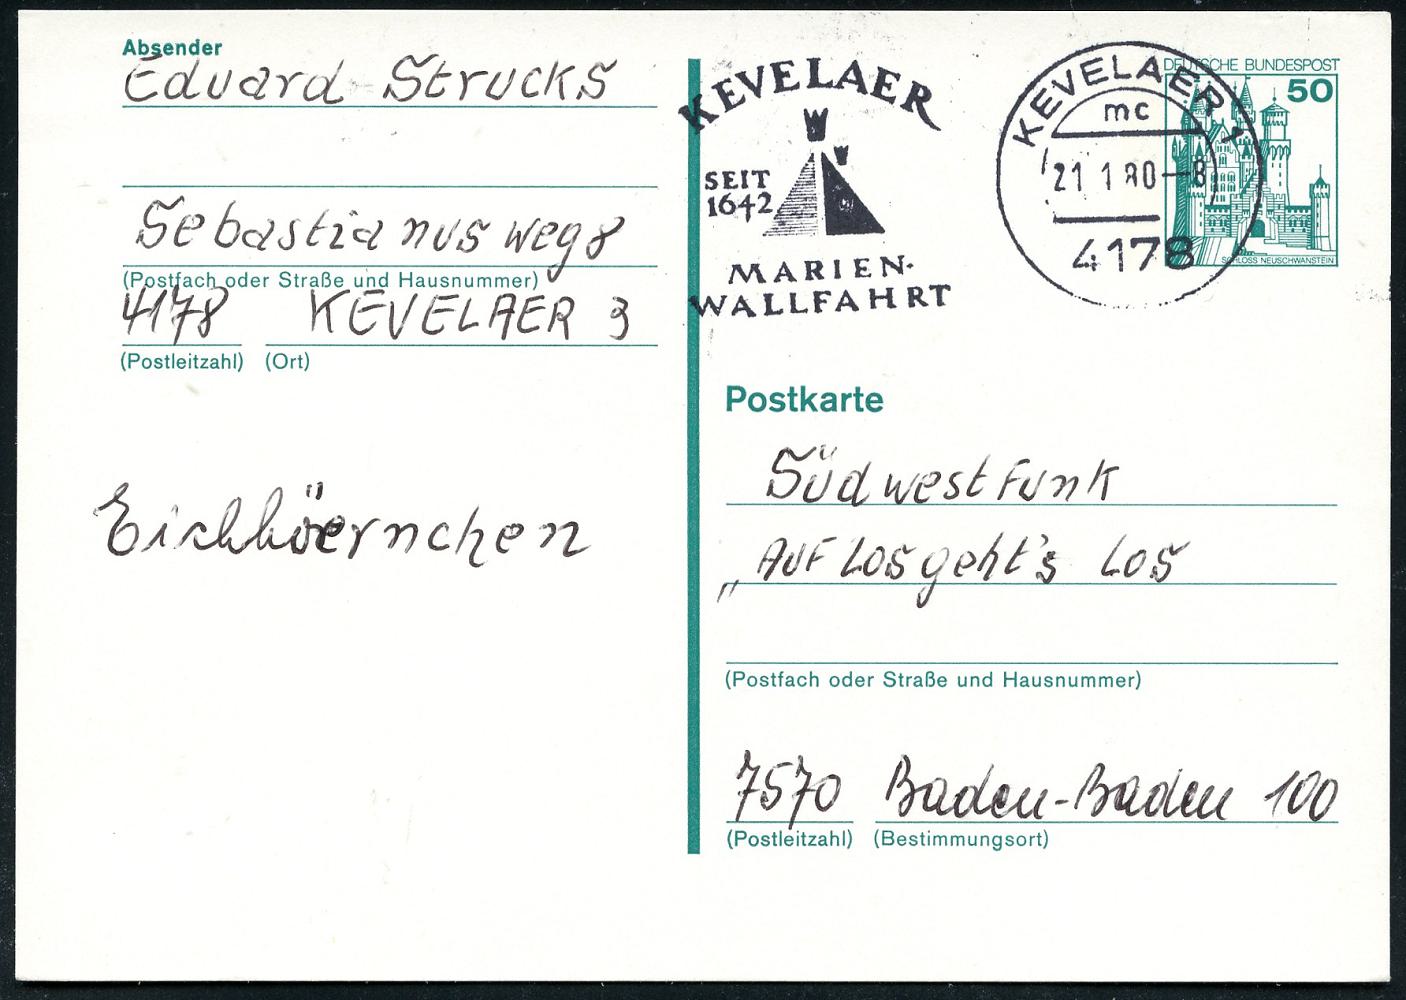 Absender
Eduard Strucks
Sebastianusweg 8
(Postfach oder Straße und Hausnummer)
4178 KEVELAER 3
(Postleitzahl) (Ort)
Eichhöernchen
KEVELAER
SEIT
1642
MARIEN-
WALLFAHRT
KEVELAER 1
mc
21.1.80-8
4178
DEUTSCHE BUNDESPOST
50
SCHLOSS NEUSCHWANSTEIN
Postkarte
Südwestfunk
„AUF LOS geht's LOS
(Postfach oder Straße und Hausnummer)
7570 Baden-Baden 100
(Postleitzahl) (Bestimmungsort)